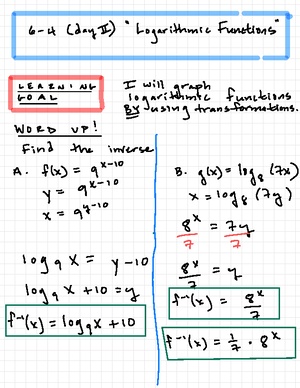 6-4 (day II) "Logarithmic Functions"
LEARNING GOAL
I will graph logarithmic functions BY using transformations.
WORD UP!
Find the inverse
A. f(x) = 9^(x-10)
y = 9^(x-10)
x = 9^(y-10)
log₉ x = y-10
log₉ x + 10 = y
f⁻¹(x) = log₉ x + 10
B. g(x) = log₈ (7x)
x = log₈ (7y)
8^x = 7y
7 7
8^x/7 = y
f⁻¹(x) = 8^x/7
f⁻¹(x) = 1/7 · 8^x